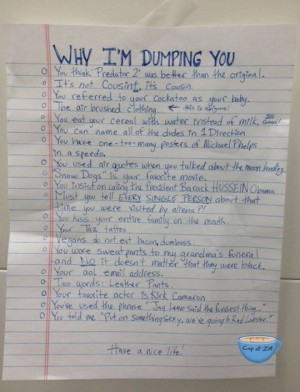 WHY I'M DUMPING YOU
You think Predator 2 was better than the original.
It's not Cousint, It's Cousin.
You referred to your Cockatoo as your baby.
The air brushed clothing.
You eat your cereal with water instead of milk.
You can name all of the dudes in 1 Direction
You have one-too-many posters of Michael Phelps
in a speedo.
You used air quotes when you talked about the moon landing
"Snow Dogs" is your favorite movie.
You insist on calling the President Barack HUSSEIN Obama
Must you tell EVERY SINGLE PERSON about that
time you were visited by aliens?!
You kiss your entire family on the mouth.
Your Taz tattoo.
Vegans do not eat bacon, dumbass.
You wore sweatpants to my grandma's funeral
and NO it doesn't matter that they were black.
Your aol email address.
Two words: Leather Pants.
Your favorite actor is Kirk Cameron
You've used the phrase "Jay Leno said the funniest thing..."
You told me "Put on something sexy, we're going to Red Lobster."
Have a nice life!
Cup of Zup